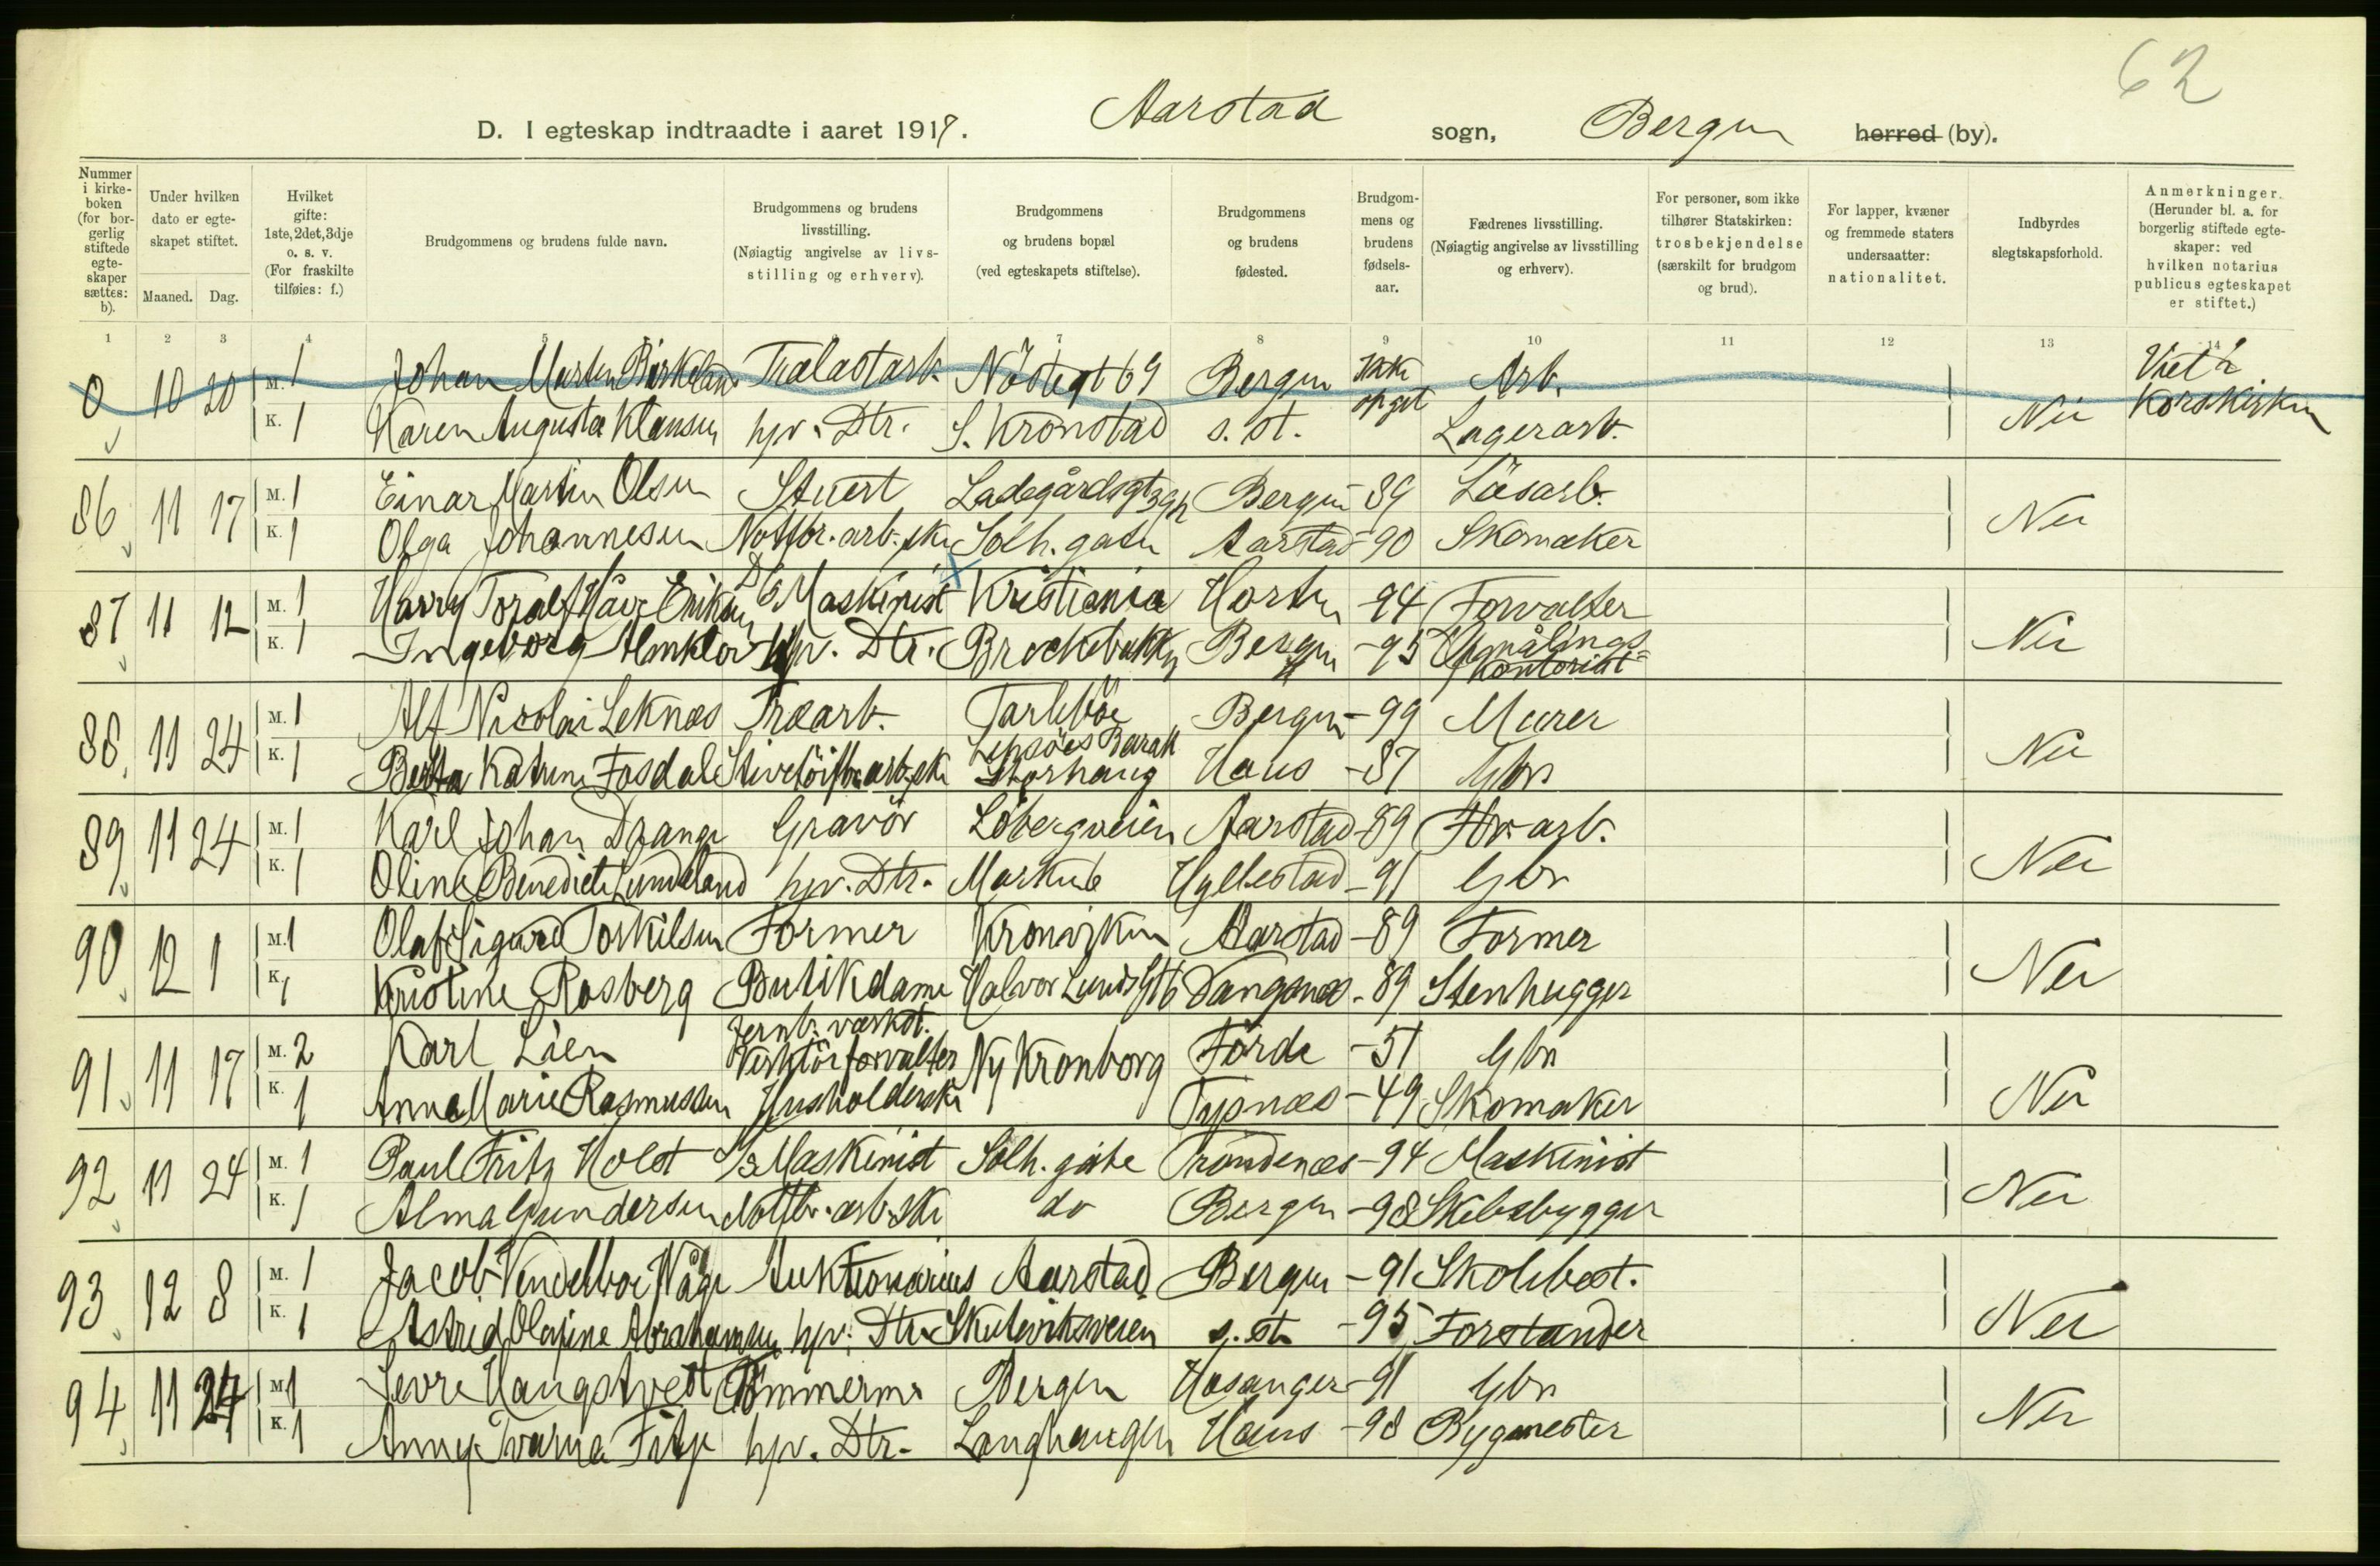 62
D. I egteskap indtraadte i aaret 1917. Aarstad sogn, Bergen herred (by).
Nummer i kirkeboken (for borgerlig stiftede egteskaper sættes: b).
Under hvilken dato er egteskapet stiftet.
Maaned. Dag.
Hvilket gifte: 1ste, 2det, 3dje o. s. v. (For fraskilte tilføies: f.)
Brudgommens og brudens fulde navn.
Brudgommens og brudens livsstilling. (Nøiagtig angivelse av livsstilling og erhverv).
Brudgommens og brudens bopæl (ved egteskapets stiftelse).
Brudgommens og brudens fødested.
Brudgommens og brudens fødselsaar.
Fædrenes livsstilling. (Nøiagtig angivelse av livsstilling og erhverv).
For personer, som ikke tilhører Statskirken: trosbekjendelse (særskilt for brudgom og brud).
For lapper, kvæner og fremmede staters undersaatter: nationalitet.
Indbyrdes slegtskapsforhold.
Anmerkninger. (Herunder bl. a. for borgerlig stiftede egteskaper: ved hvilken notarius publicus egteskapet er stiftet.)
1 2 3 4 5 6 7 8 9 10 11 12 13 14
0 10 20 M. 1 Johan Martin Birkeland Trælastarb. Nöstegt 69 Bergen Ikke opgit Arb. Viet i Korskirken
K. 1 Karen Augusta Klausen hjv. Dtr. S. Kronstad s. st. Lagerarb. Nei
86 11 17 M. 1 Einar Martin Olsen Stuert Ladegårdsgt 39 Bergen -89 Lösarb.
K. 1 Olga Johannesen Notfbr. arb.ske Solh. gaten Aarstad -90 Skomaker Nei
87 11 12 M. 1 Harry Toralf Eriksen D/S Maskinist Kristiania Horten -94 Forvalter
K. 1 Ingeborg Almklov Hjv. Dtr. Bergen -95 Opmålingskontorist Nei
88 11 24 M. 1 Alf Nicolai Leknæs Træarb. Tarlebøe Bergen -99 Murer
K. 1 Berta Katrine Fosdal Stivelsifbr. arb.ske Lepsöes Barak Storhaug Haus -87 Gbr Nei
89 11 24 M. 1 Karl Johan Drange Gravör Löbergveien Aarstad -89 Fbr. arb.
K. 1 Oline Benedicte Lundeland hjv. Dtr. Markus Hyllestad -91 Gbr Nei
90 12 1 M. 1 Olaf Sigurd Torkilsen Former Kroniken Aarstad -89 Former
K. 1 Kristine Rosberg Butikdame Halvor Lunds gt 6 Vangsnes -89 Stenhugger Nei
91 11 17 M. 2 Karl Lien Jernb. værkst. Verktöiforvalter Ny Kronborg Förde -51 Gbr
K. 1 Anna Marie Rasmussen Husholderske -49 Skomaker Nei
92 11 24 M. 1 Paul Fritz Holst D/S Maskinist Solh. gate Trondenæs -94 Maskinist
K. 1 Alma Gundersen Notfbr. arb.ske do Bergen -98 Skibsbygger Nei
93 12 8 M. 1 Jacob Vendelboe Våge Auktionarius Aarstad Bergen -91 Skolebest.
K. 1 Astrid Olafine Abrahamsen hjv. Dtr. Skuteviksveien s. st. -95 Forstander Nei
94 11 24 M. 1 Sevre Haugstvedt Tömmerm. Bergen Hosanger -91 Gbr
K. 1 Anny Tvarna Fitje hjv. Dtr. Langhaugen Haus -98 Bygmester Nei